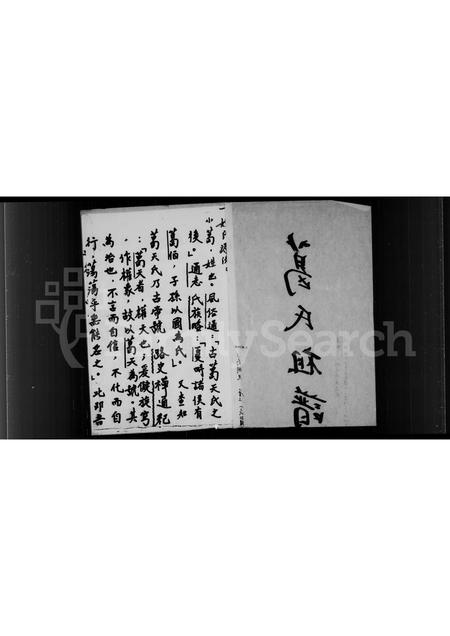 葛氏祖譜
小葛,姓也。風俗通:古葛天氏之
後」。通志氏族略:夏時諸侯有
葛伯,子孫以國為氏」。又查知
葛天氏乃古帝號,路史禪通紀
:「葛天者,權天也,爰儗旋穹
,作權象,故以葛天為號。其
為治也,不言而自信,不化而自
行,蕩蕩乎無能名之。」此即吾
Search